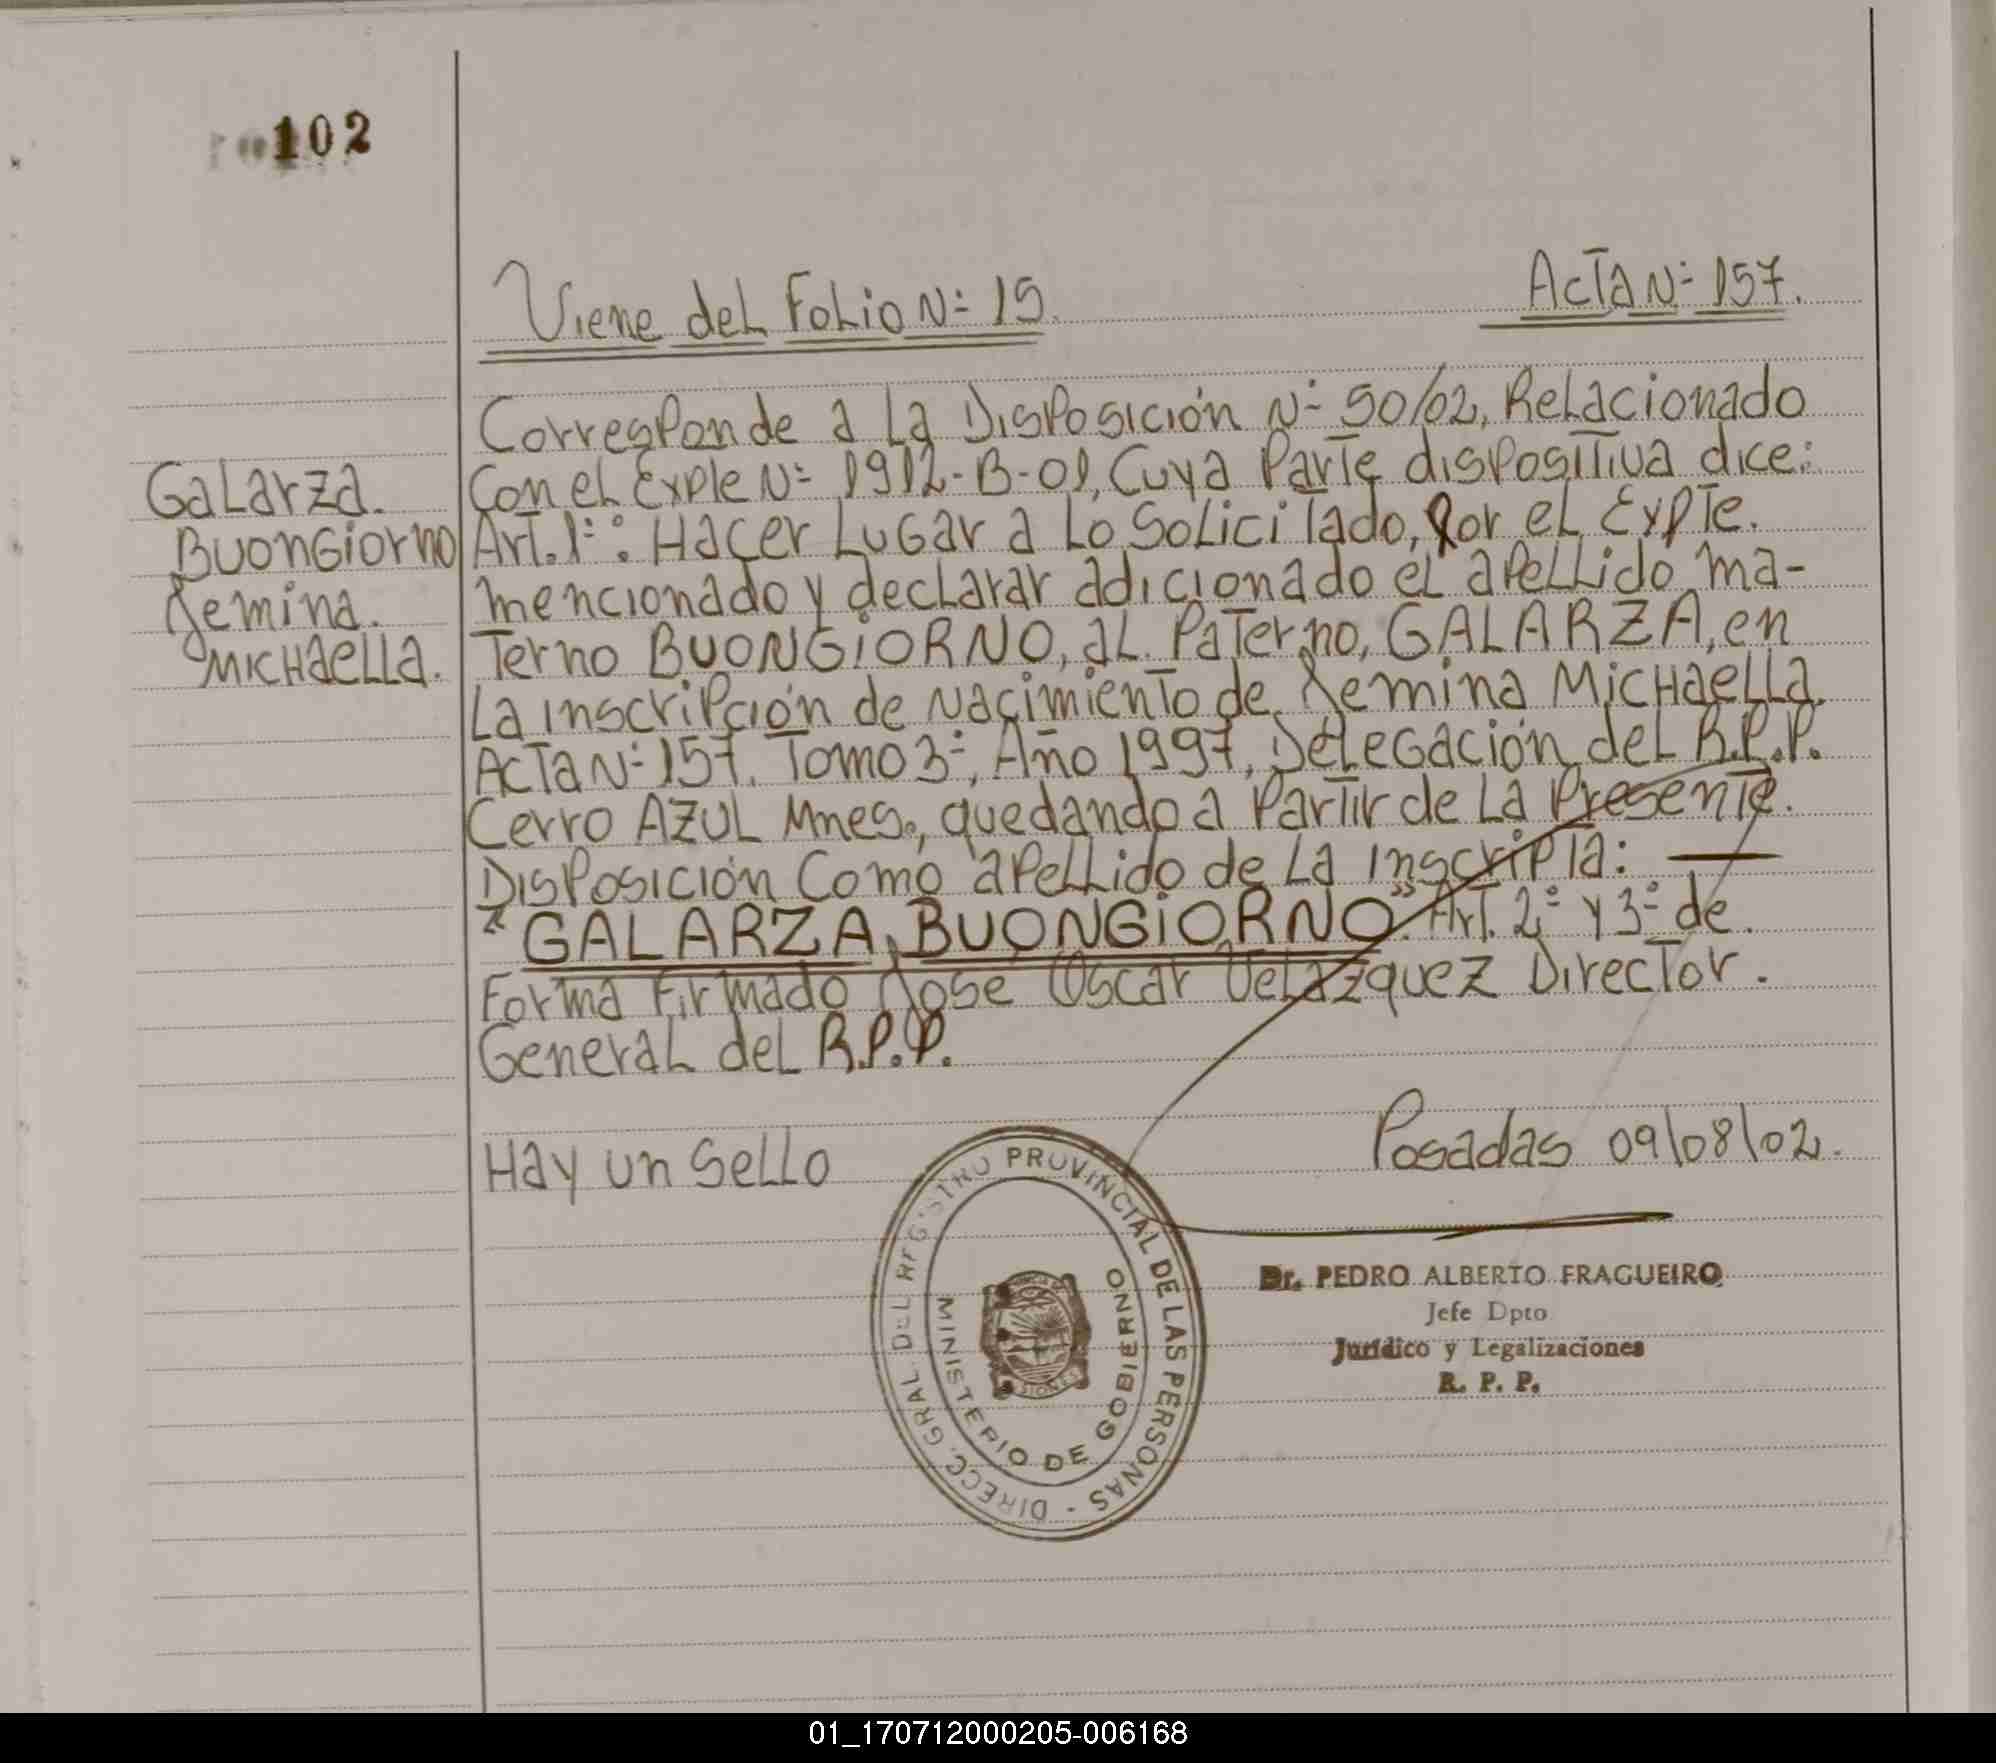 102
Viene del Folio N= 15.
Acta N= 157.
Corresponde a La Disposición N= 50/02, Relacionado
Galarza.
Con el Expte N= 1912-B-01, Cuya Parte dispositiva dice:
Buongiorno
Art. 1=: Hacer Lugar a Lo Solicitado, Por el Expte.
Jemina.
mencionado y declarar adicionado el apellido ma-
Michaella.
terno BUONGIORNO, al Paterno, GALARZA, en
La inscripción de Nacimiento de Jemina Michaella.
Acta N= 157. Tomo 3=, Año 1997, Delegación del R.P.P.
Cerro Azul Mnes., quedando a Partir de La Presente.
Disposición Como apellido de La Inscripta: —
"GALARZA, BUONGIORNO". Art. 2° y 3= de.
Forma Firmado Jose Oscar Velazquez Director.
General del R.P.P.
Hay un Sello
Posadas 09/08/02.
DIRECC. GRAL. DEL REGISTRO PROVINCIAL DE LAS PERSONAS -
MINISTERIO DE GOBIERNO
Dr. PEDRO ALBERTO FRAGUEIRO
Jefe Dpto
Jurídico y Legalizaciones
R. P. P.
01_170712000205-006168